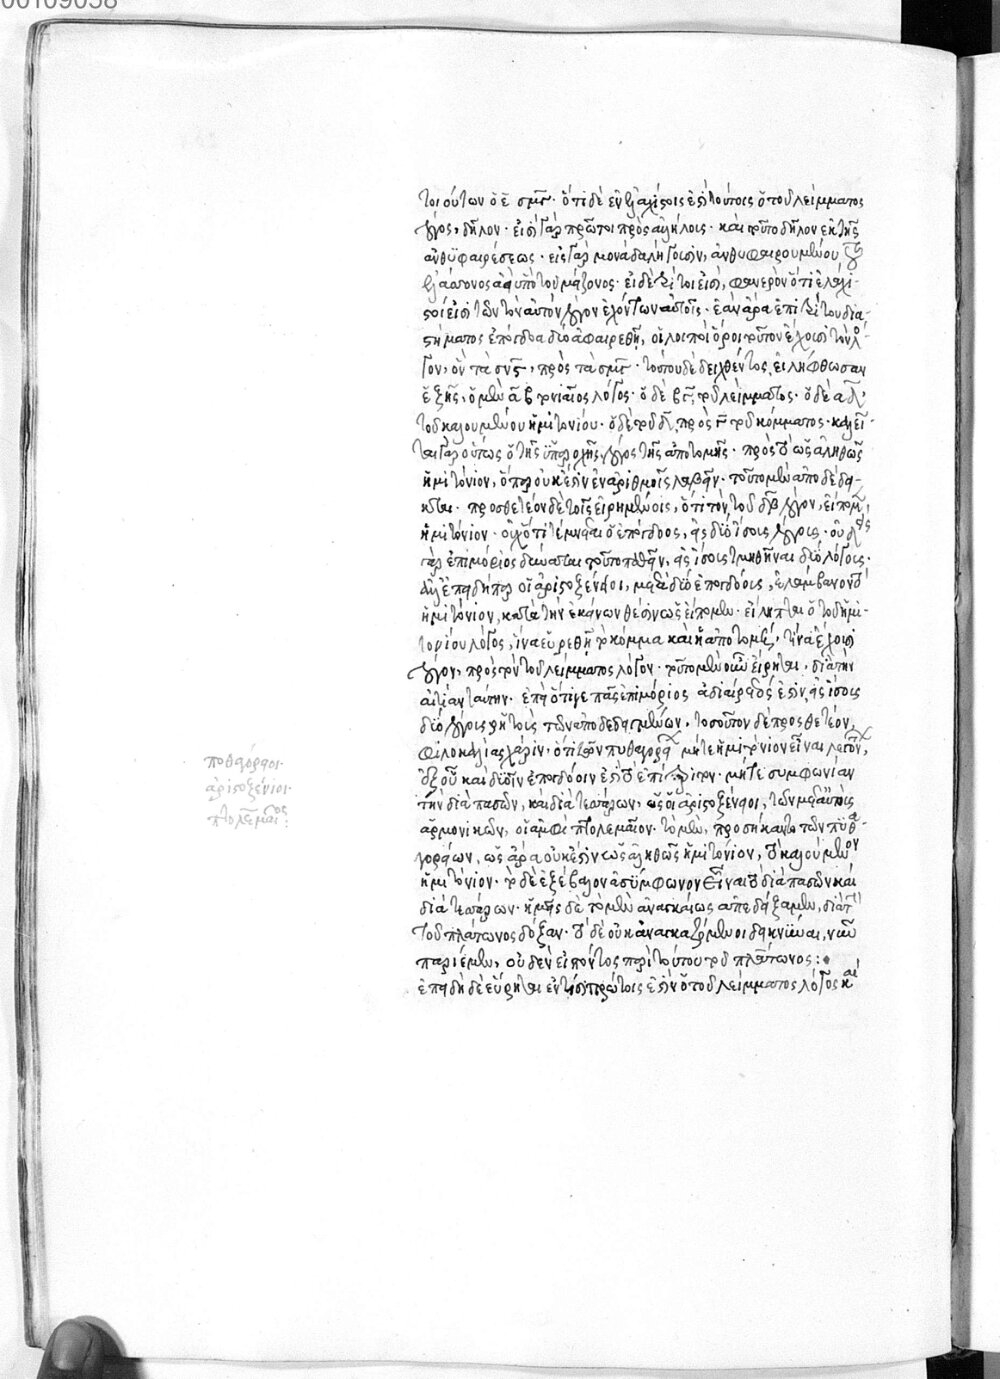 00109058
τοιούτων ὁ ε σμγ· ὅτι δὲ ἐν ἐλαχίστοις ἐστὶν οὗτοις ὁ τοῦ λείμματος
λόγος, δῆλον· εἰσὶ γὰρ πρῶτοι πρὸς ἀλλήλοις· καὶ τοῦτο δῆλον ἐκ τῆς
ἀνθυφαιρέσεως· εἰς γὰρ μονάδα λήγουσιν, ἀνθυφαιρουμένου τοῦ
ἐλάσσονος ἀεὶ ὑπὸ τοῦ μείζονος· εἰ δὲ πρῶτοι εἰσὶ, φανερὸν ὅτι ἐλάχι-
στοί εἰσι τῶν τὸν αὐτὸν λόγον ἐχόντων αὐτοῖς· ἐὰν ἄρα ἐπὶ τοῦ δια-
στήματος ἐπόγδοα δύο ἀφαιρεθῇ, οἱ λοιποὶ ὅροι τοῦτον ἔχουσι τὸν λό-
γον, ὃν τὰ σνς, πρὸς τὰ σμγ· τούτου δὲ δειχθέντος, εἰλήφθωσαν
ἑξῆς, ὁ μὲν α β τονιαῖος λόγος· ὁ δὲ β γ, τοῦ λείμματος· ὁ δὲ α δ,
τοῦ καλουμένου ἡμιτονίου· ὁ δὲ τοῦ δ, πρὸς γ τοῦ κόμματος· καλεῖ-
ται γὰρ οὕτως ὁ τῆς ὑπεροχῆς λόγος τῆς ἀποτομῆς· πρὸς τὸ ὡς ἀληθῶς
ἡμιτόνιον, ὅπερ οὐκ ἔστιν ἐν ἀριθμοῖς λαβεῖν· τοῦτο μὲν ἀποδέδει-
κται· προσθετέον δὲ τοῖς εἰρημένοις, ὅτι τὸν τοῦ δβ λόγον, εἴπομεν
ἡμιτόνιον· οὐχ ὅτι τέμνεται ὁ ἐπόγδοος, εἰς δύο ἴσους λόγους· οὐδεὶς
γὰρ ἐπιμόριος δύναται τοῦτο παθεῖν, εἰς ἴσους τμηθῆναι δύο λόγους·
ἀλλ' ἐπειδήπερ οἱ ἀριστοξένειοι, μετὰ δύο ἐπογδόους, ἐλάμβανον τὸ
ἡμιτόνιον, κατὰ τὴν ἐκείνων θέσιν ὡς εἴπομεν· εἴληπται ὁ τοῦ ἡμι-
τονίου λόγος, ἵνα εὑρεθῇ τὸ κόμμα καὶ ἡ ἀποτομὴ, τίνα ἔχουσι
λόγον, πρὸς τὸν τοῦ λείμματος λόγον· τοῦτο μὲν οὖν εἴρηται, διὰ τὴν
αἰτίαν ταύτην· ἐπεὶ ὅτι γε πᾶς ἐπιμόριος ἀδιαίρετός ἐστιν, εἰς ἴσους
δύο λόγους ῥητοὺς τῶν ἀποδεδειγμένων, τοσοῦτον δὲ προσθετέον,
φιλοκαλίας χάριν· ὅτι τῶν πυθαγορείων μήτε ἡμιτόνιον εἶναι λεγόντων,
τὸ ἐξ οὗ καὶ δυοῖν ἐπογδόοιν ἐστὶ τὸ ἐπίτριτον· μήτε συμφωνίαν
τὴν διὰ πασῶν, καὶ διὰ τεσσάρων, ὡς οἱ ἀριστοξένειοι, τῶν μετ' αὐτοὺς
ἁρμονικῶν, οἱ ἀμφὶ πτολεμαῖον· τὸ μὲν, προσήκαντο τῶν πυθα-
γορείων, ὡς ἄρα οὐκ ἔστιν ὡς ἀληθῶς ἡμιτόνιον, τὸ καλούμενον
ἡμιτόνιον· τὸ δὲ ἐξέβαλον ἀσύμφωνον εἶναι τὸ διὰ πασῶν καὶ
διὰ τεσσάρων· ἡμεῖς δὲ τὸ μὲν ἀναγκαίως ἀπεδειξάμεν, διὰ τὴν
τοῦ πλάτωνος δόξαν· τὸ δὲ οὐκ ἀναγκαζόμενοι δεικνύναι, νῦν
παρίεμεν, οὐδὲν εἰπόντος περὶ τούτου τοῦ πλάτωνος:·
ἐπειδὴ δὲ εὕρηται ἐν τίσι πρώτοις ἐστὶν ὁ τοῦ λείμματος λόγος καὶ
πυθαγόρειοι·
ἀριστοξένιοι·
πτολεμαῖος: